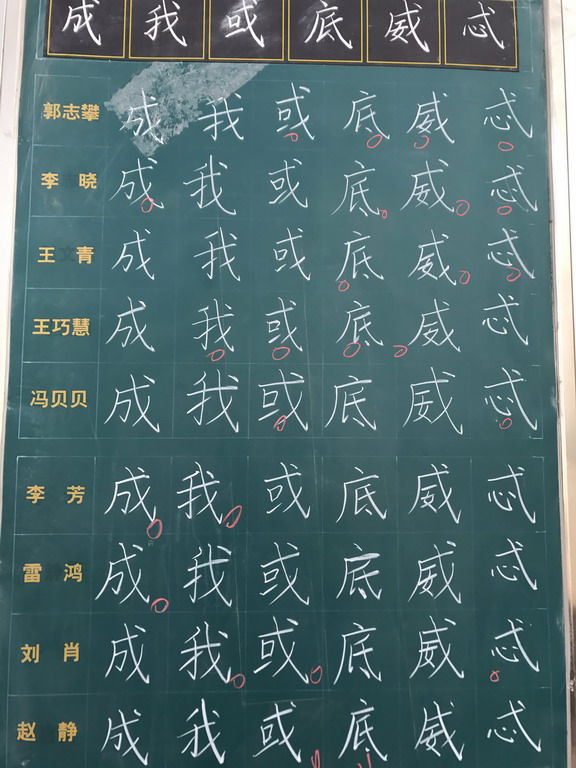 成 我 或 底 威 忒
郭志攀 成 我 或 底 威 忒
李 晓 成 我 或 底 威 忒
王 文 青 成 我 或 底 威 忒
王巧慧 成 我 或 底 威 忒
冯贝贝 成 我 或 底 威 忒
李 芳 成 我 或 底 威 忒
雷 鸿 成 我 或 底 威 忒
刘 肖 成 我 或 底 威 忒
赵 静 成 我 或 底 威 忒